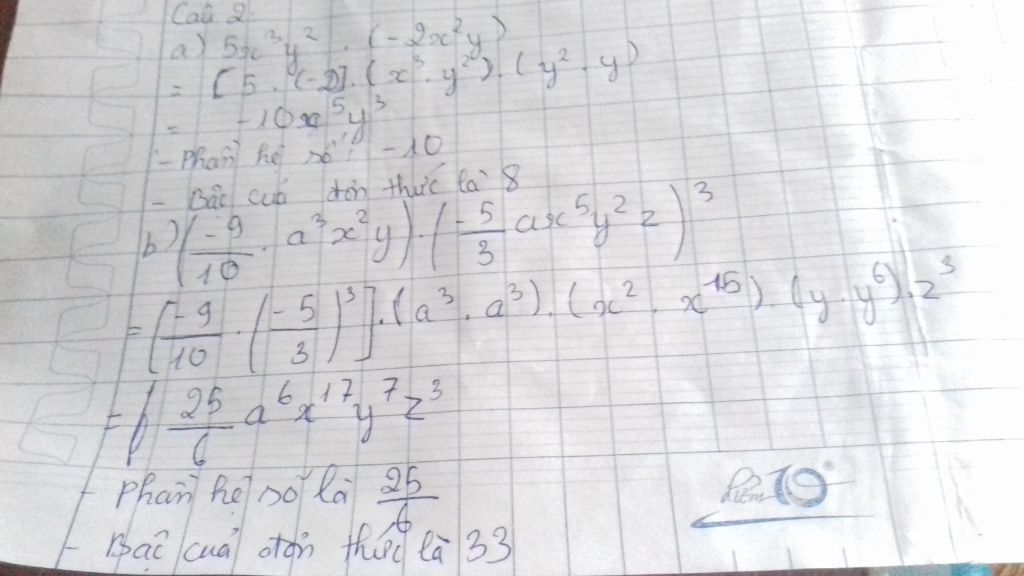 Câu 2
a) 5x³y² . (-2x²y)
= [5 . (-2)] . (x³ . y²) . (y² . y)
= -10x⁵y³
- Phần hệ số: -10
- Bậc cuả đơn thức là 8
b) (-9/10 . a³x²y) . (-5/3 ax⁵y²z)³
= [-9/10 . (-5/3)³] . (a³ . a³) . (x² . x¹⁵) . (y . y⁶) . z³
= 25/6 a⁶x¹⁷y⁷z³
- Phần hệ số là 25/6
- Bậc cuả đơn thức là 33
điểm 10